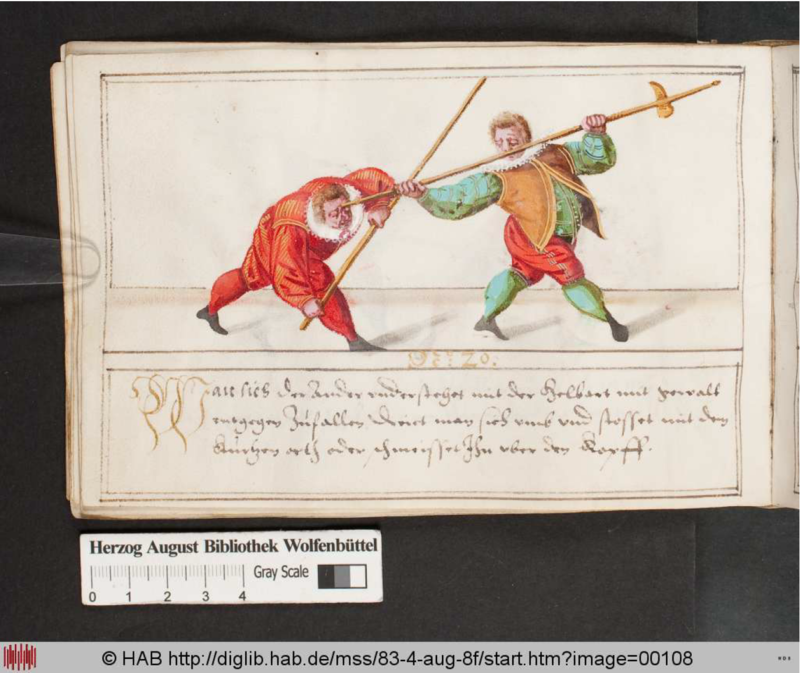 N:º 20.
Wan sich der Ander understehet mit der Helbart mit gewalt
entgegen Zufallen dreiet man sich umb und stosset mit dem
kurtzen orth oder schmeisset Ihn uber den Kopff.
Herzog August Bibliothek Wolfenbüttel
Gray Scale
0 1 2 3 4
© HAB http://diglib.hab.de/mss/83-4-aug-8f/start.htm?image=00108